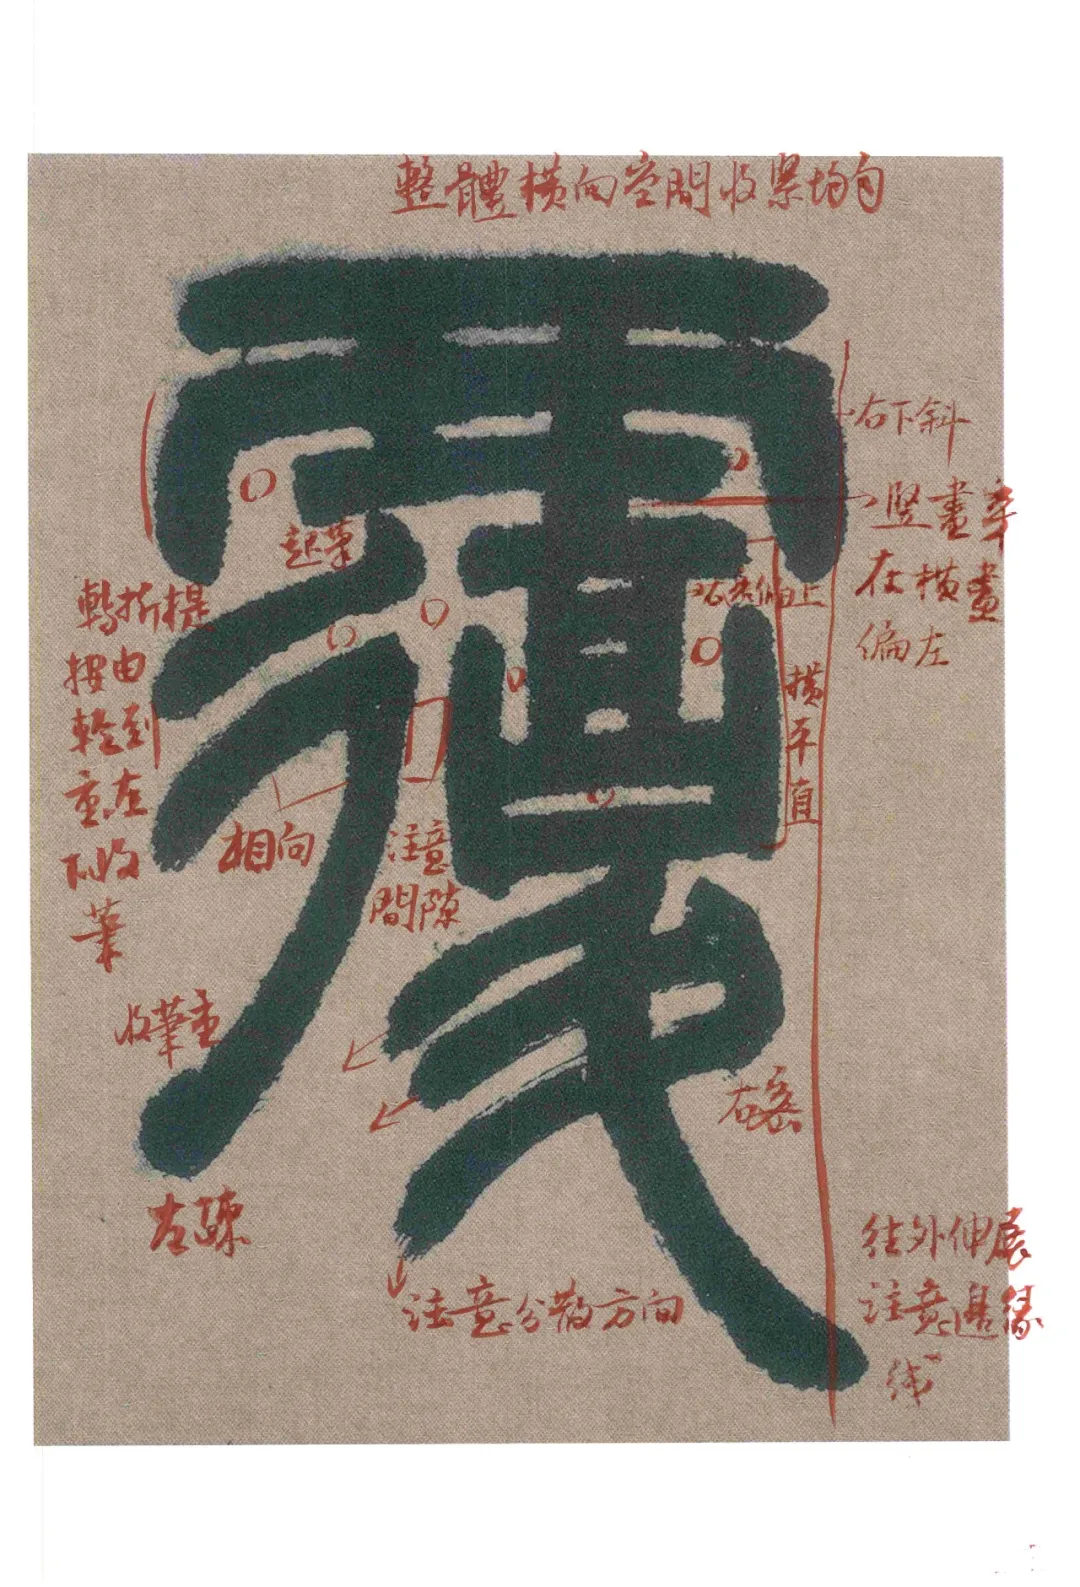 整體橫向空間收緊均勻
右下斜
竖畫牽
在橫畫
偏左
起筆
右旁偏上
橫平直
轉折提
按由
輕到
重在
下收
筆
相向
注意
間隙
收筆重
右密
左疎
注意分散方向
往外伸展
注意邊緣
线